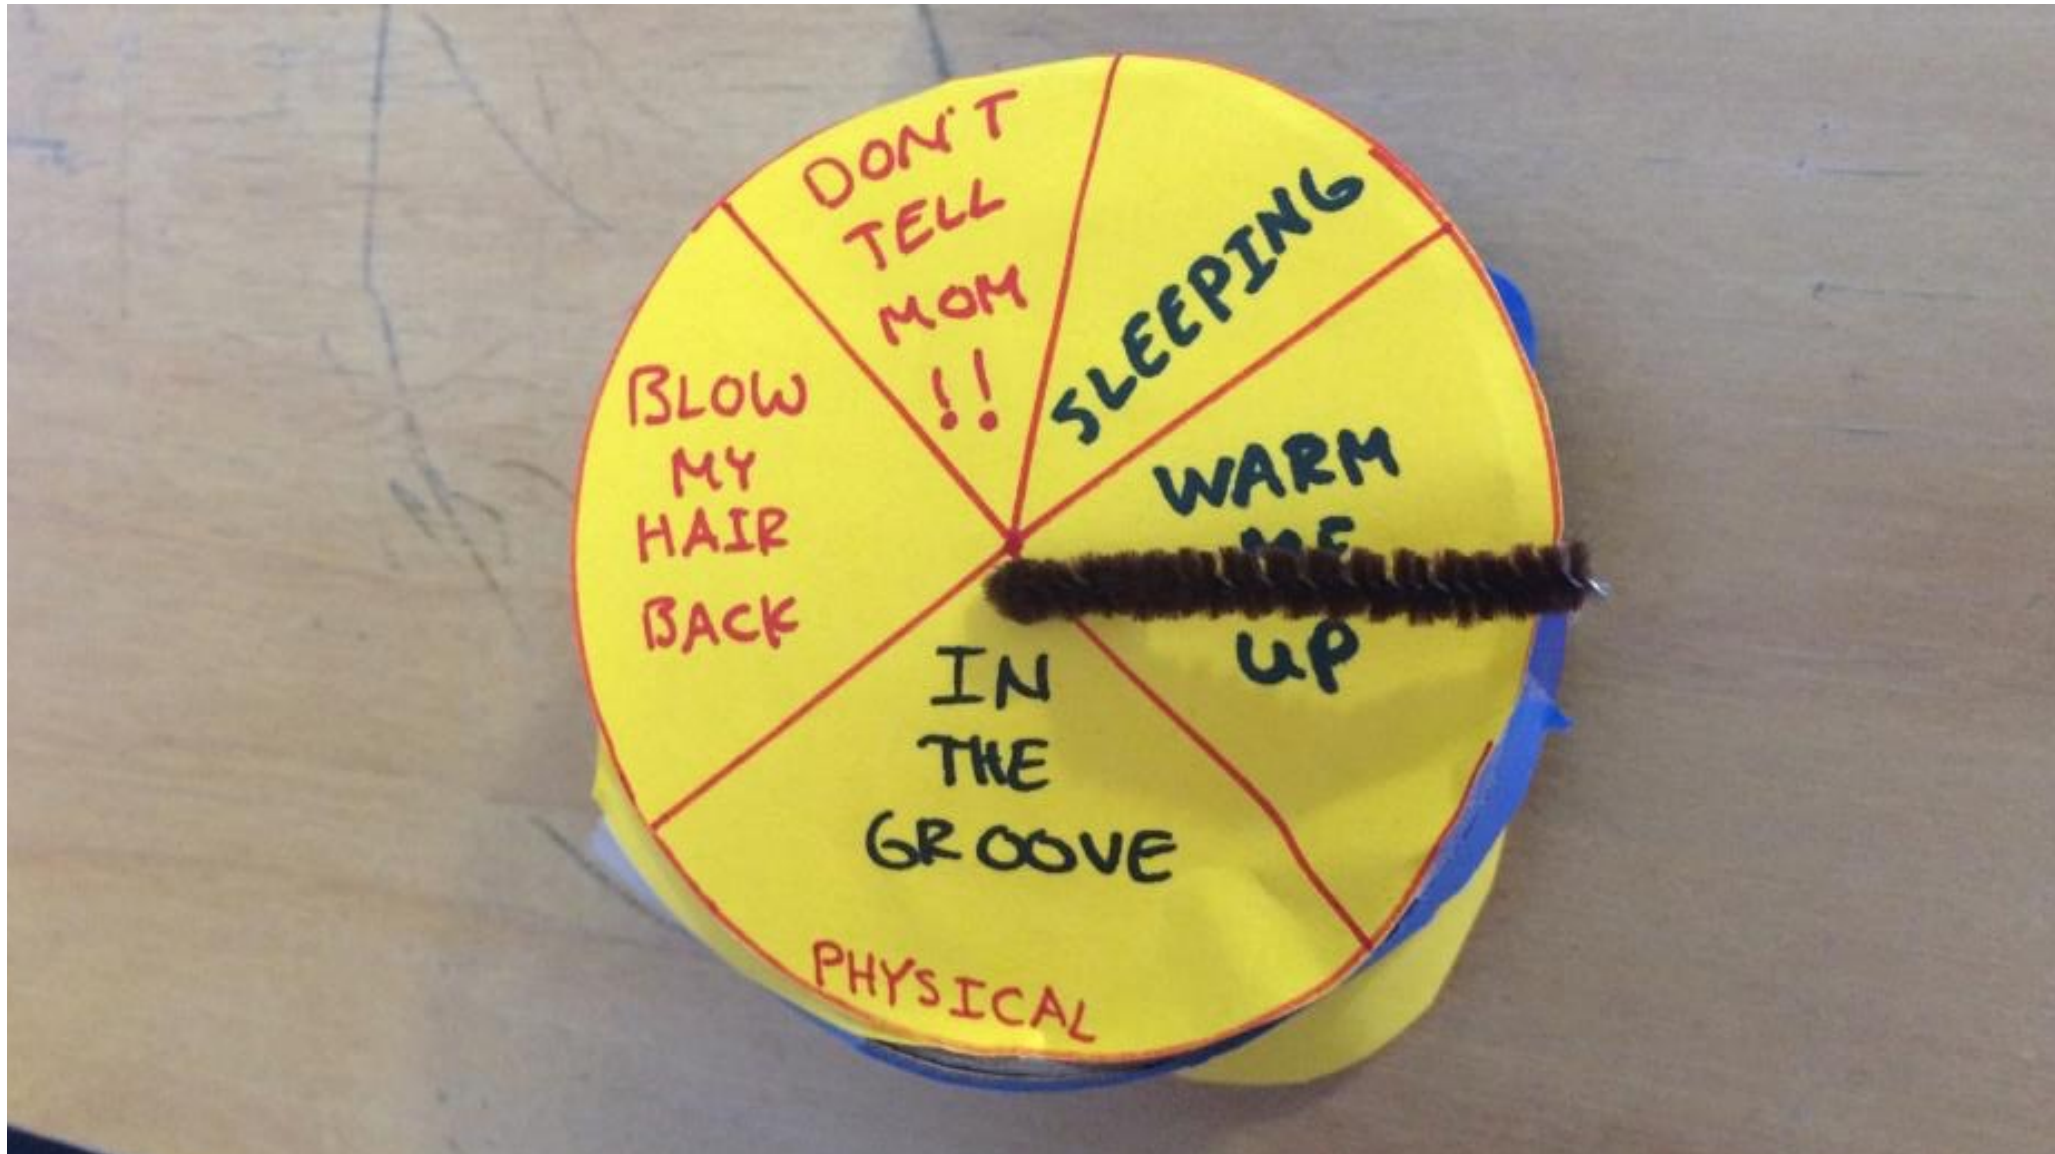 DON'T
TELL
MOM
!!
SLEEPING
WARM
ME
UP
IN
THE
GROOVE
PHYSICAL
BLOW
MY
HAIR
BACK